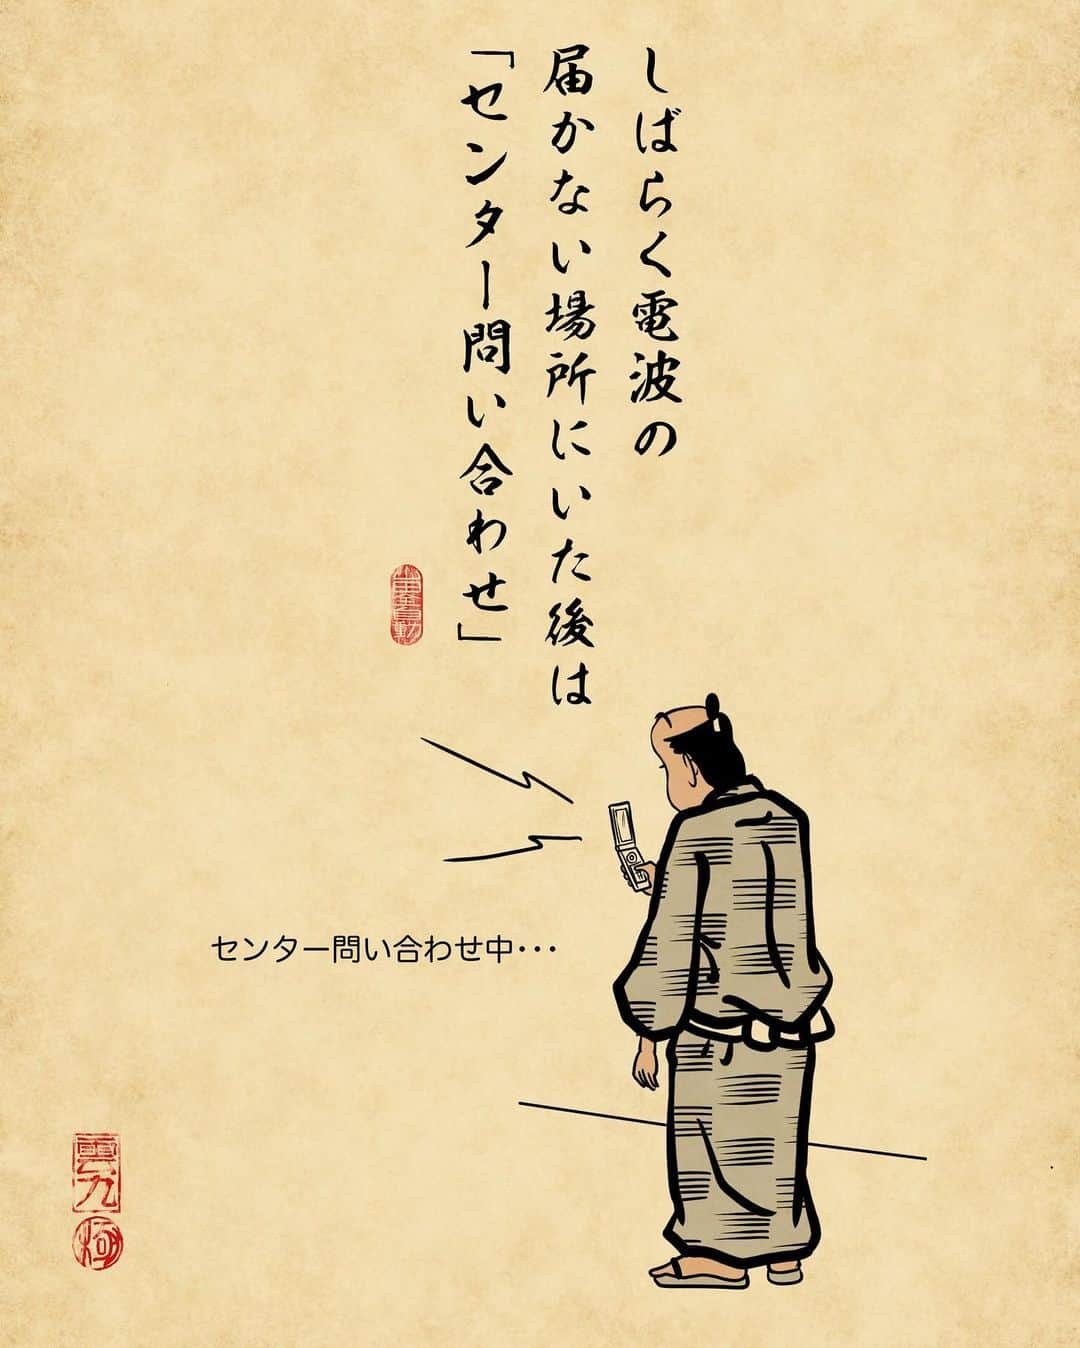 しばらく電波の
届かない場所にいた後は
「センター問い合わせ」
センター問い合わせ中･･･